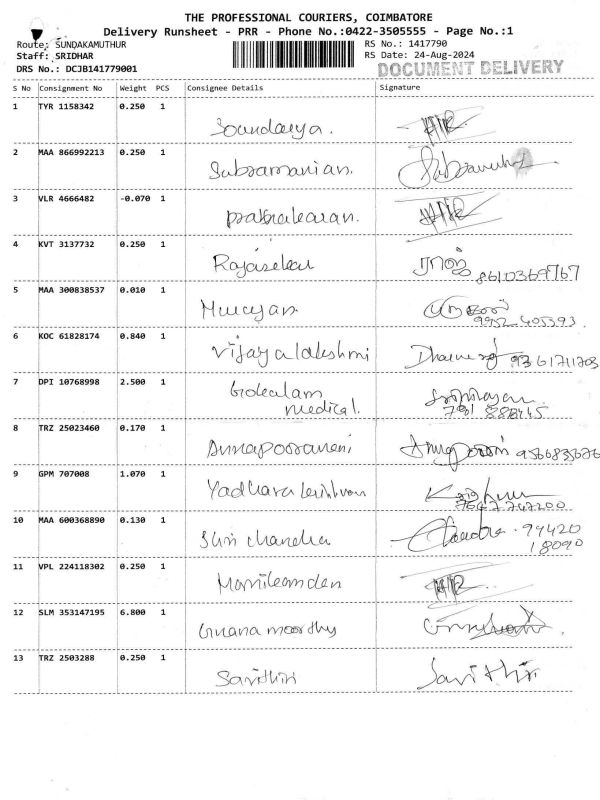 THE PROFESSIONAL COURIERS, COIMBATORE
Delivery Runsheet - PRR - Phone No.:0422-3505555 - Page No.:1
Route: SUNDAKAMUTHUR RS No.: 1417790
Staff: SRIDHAR RS Date: 24-Aug-2024
DRS No.: DCJB141779001 DOCUMENT DELIVERY
S No Consignment No Weight PCS Consignee Details Signature
1 TYR 1158342 0.250 1
Soundarya.
2 MAA 866992213 0.250 1
Subramanian.
3 VLR 4666482 -0.070 1
prabhakaran.
4 KVT 3137732 0.250 1
Rajasekar
8610369767
5 MAA 300838537 0.010 1
Murugan.
9952405393.
6 KOC 61828174 0.840 1
Vijayalakshmi
7 DPI 10768998 2.500 1
Gokulam
medical.
8 TRZ 25023460 0.170 1
Annapoorani
9 GPM 707008 1.070 1
Yadhava krishnan
10 MAA 600368890 0.130 1
Shri chandra 94420
18090
11 VPL 224118302 0.250 1
Manikandan
12 SLM 353147195 6.800 1
Gnana moorthy
13 TRZ 2503288 0.250 1
Savithiri Savithiri